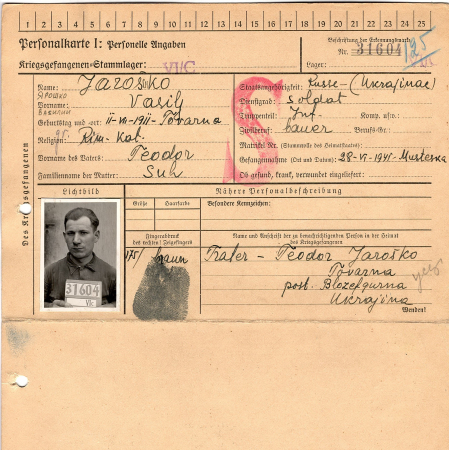 1 2 3 4 5 6 7 8 9 10 11 12 13 14 15 16 17 18 19 20 21 22 23 24 25
Personalkarte I: Personelle Angaben
Beschriftung der Erkennungsmarke
Nr. 31604
Kriegsgefangenen-Stammlager: VIIC
Lager:
Des Kriegsgefangenen
Name: Jaroško
Vorname: Vasilj
Geburtstag und -ort: 11-VII-1911- Tovarna
Religion: Rim-Kat.
Vorname des Vaters: Teodor
Familienname der Mutter: Suh
Staatsangehörigkeit: Russe-(Ukrajinac)
Dienstgrad: Soldat
Truppenteil: Inf. Komp. usw.:
Zivilberuf: bauer Berufs-Gr.:
Matrikel Nr. (Stammrolle des Heimatstaates):
Gefangennahme (Ort und Datum): 28-VI-1941-
Ob gesund, krank, verwundet eingeliefert:
Lichtbild
31604
VIIC
Nähere Personalbeschreibung
Größe
Haarfarbe
Besondere Kennzeichen:
175/ braun
Fingerabdruck
des rechten Zeigefingers
Name und Anschrift der zu benachrichtigenden Person in der Heimat
des Kriegsgefangenen
Frater- Teodor Jaroško
Tovarna
post. Blozefgurna
Ukrajina
Wenden!